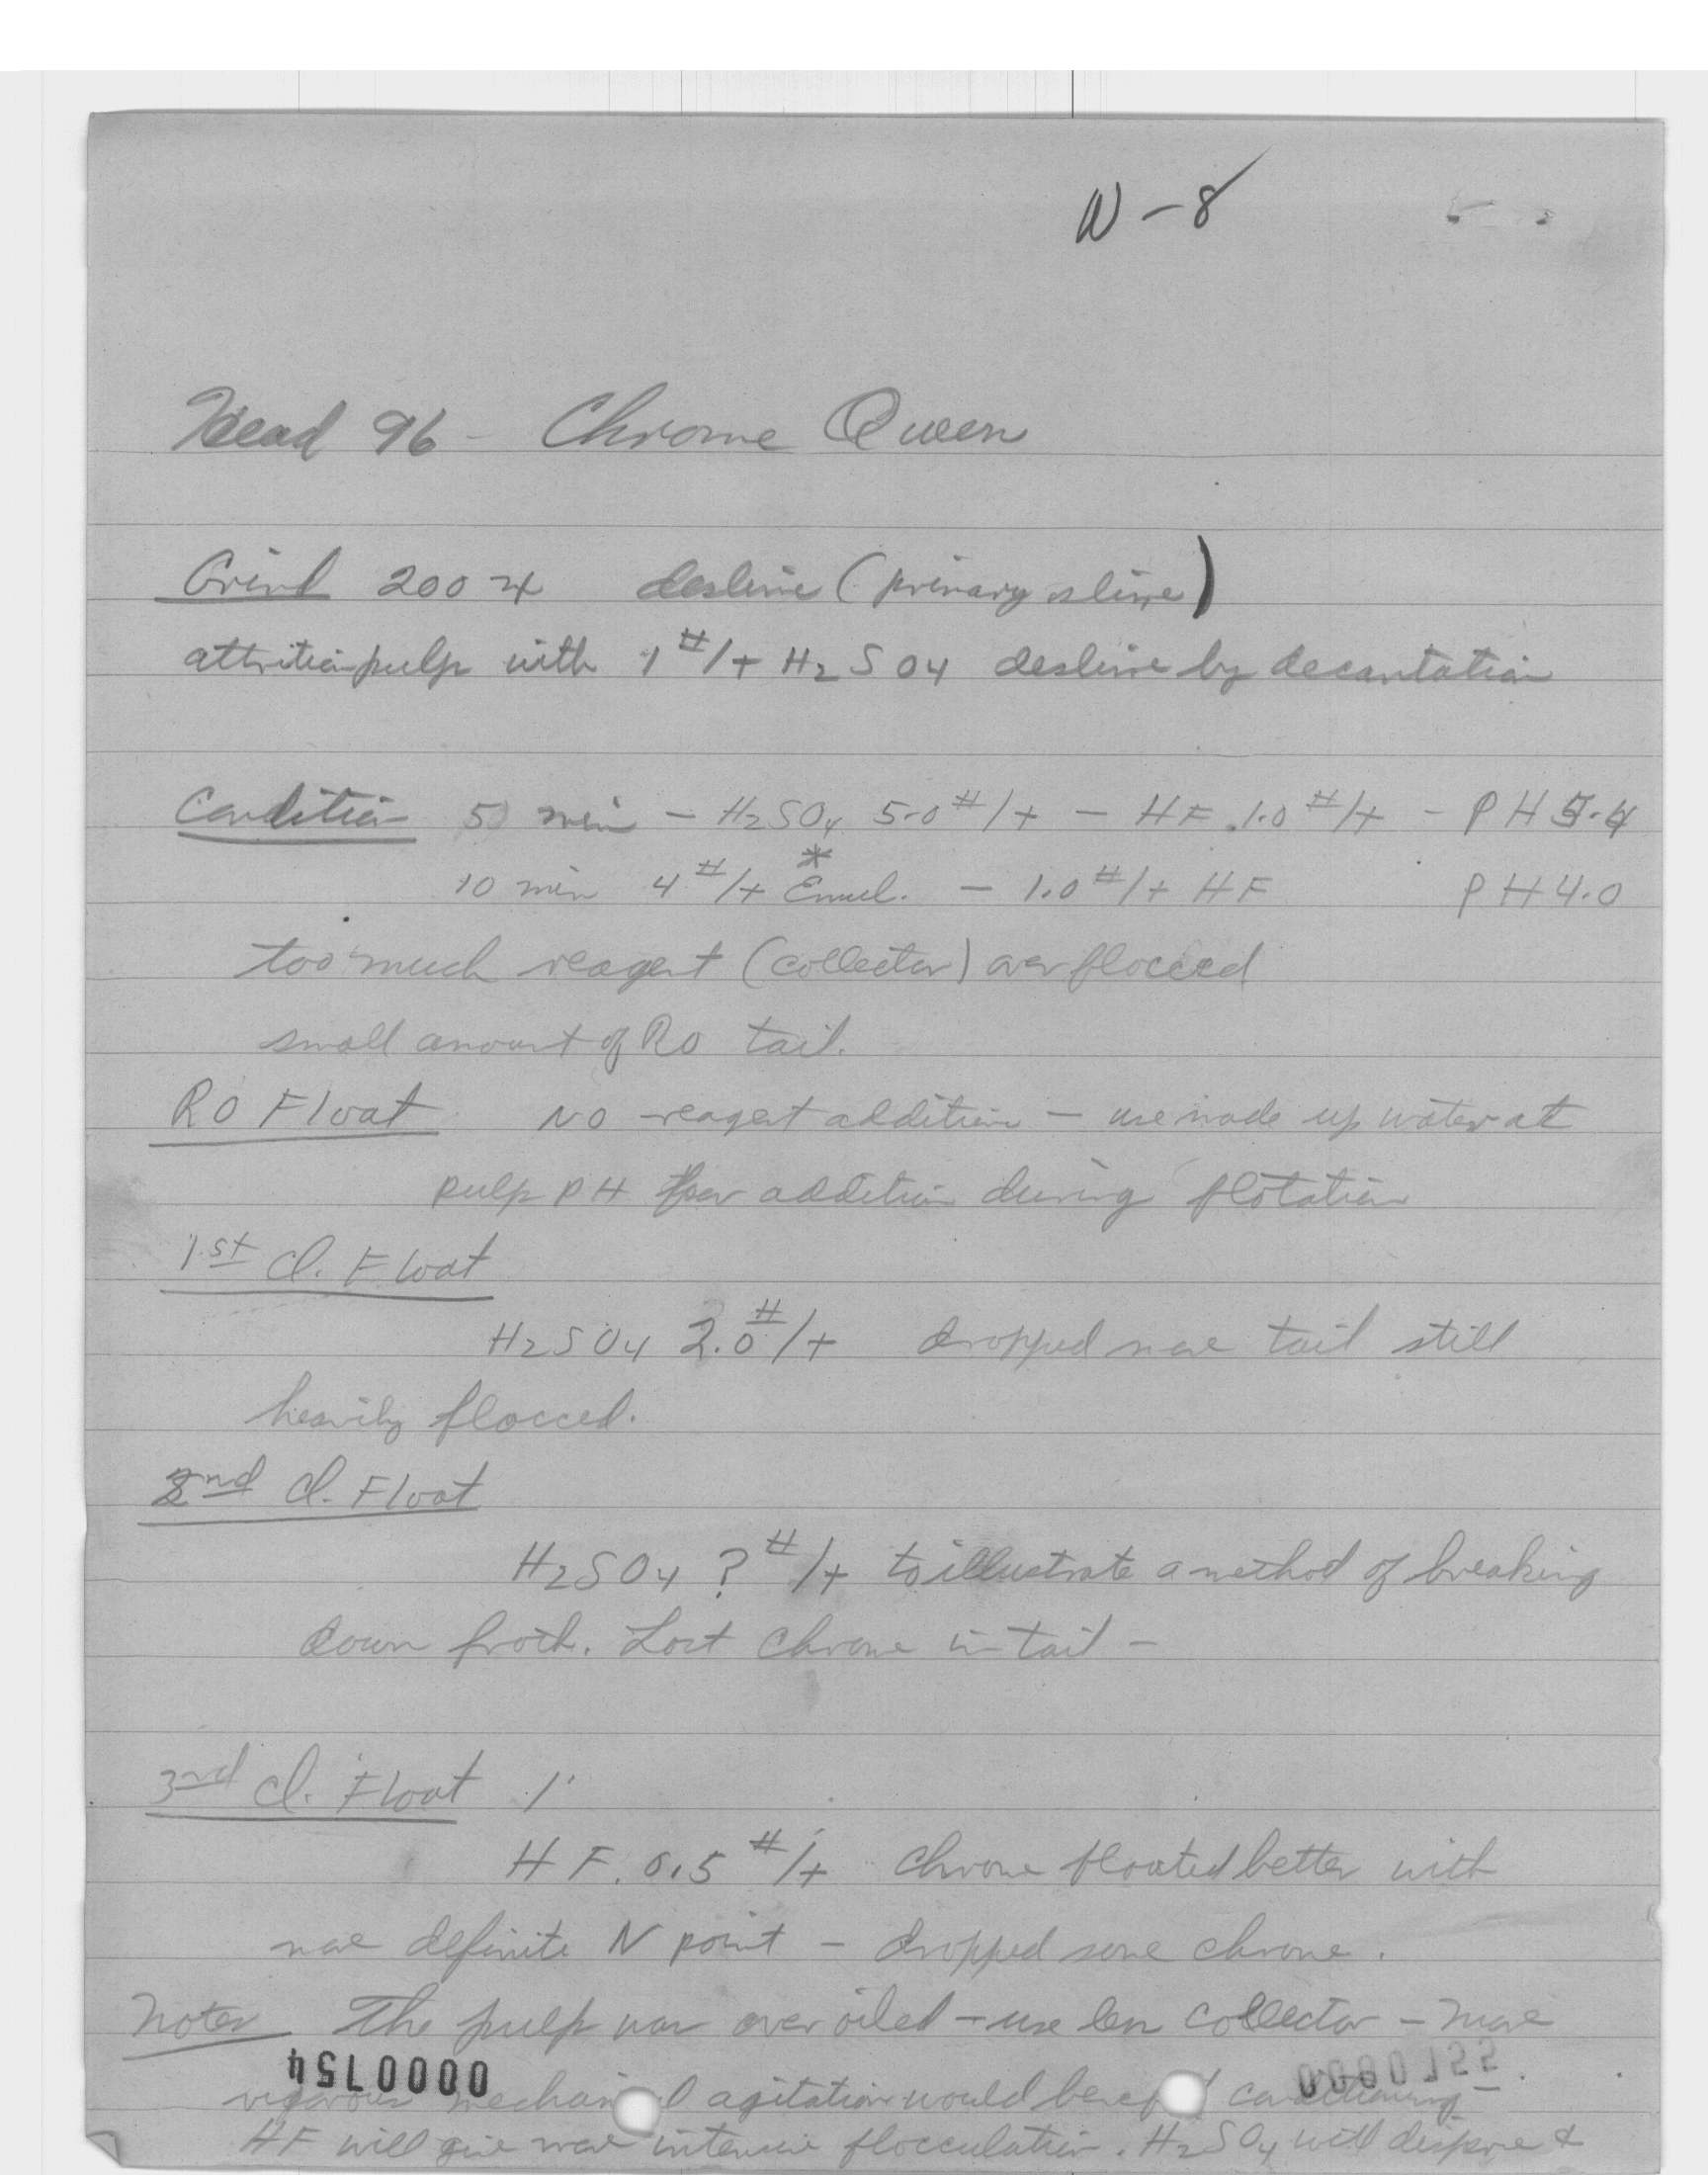 W-8
Head 96 - Chrome Queen
Grind 200 deslime (primary slime)
attrition pulp with 1 #/t H2SO4 deslime by decantation
Condition 5 min - H2SO4 5.0 #/t - HF 1.0 #/t - PH 5.4
10 min 4 #/t Emul.* - 1.0 #/t HF PH 4.0
too much reagent (collector) over flocced
small amount of Ro tail.
RO Float No reagent addition - use made up water at
pulp PH for addition during flotation
1st Cl. Float
H2SO4 2.0 #/t dropped more tail still
heavily flocced.
2nd Cl. Float
H2SO4 ? #/t to illustrate a method of breaking
down froth. Lost chrome in tail -
3rd Cl. Float
HF. 0.5 #/t Chrome floated better with
more definite N point - dropped some chrome.
Notes The pulp was over oiled - use less collector - more
00000154
vigorous mechanical agitation would benefit conditioning -
HF will give more intensive flocculation. H2SO4 will disperse &